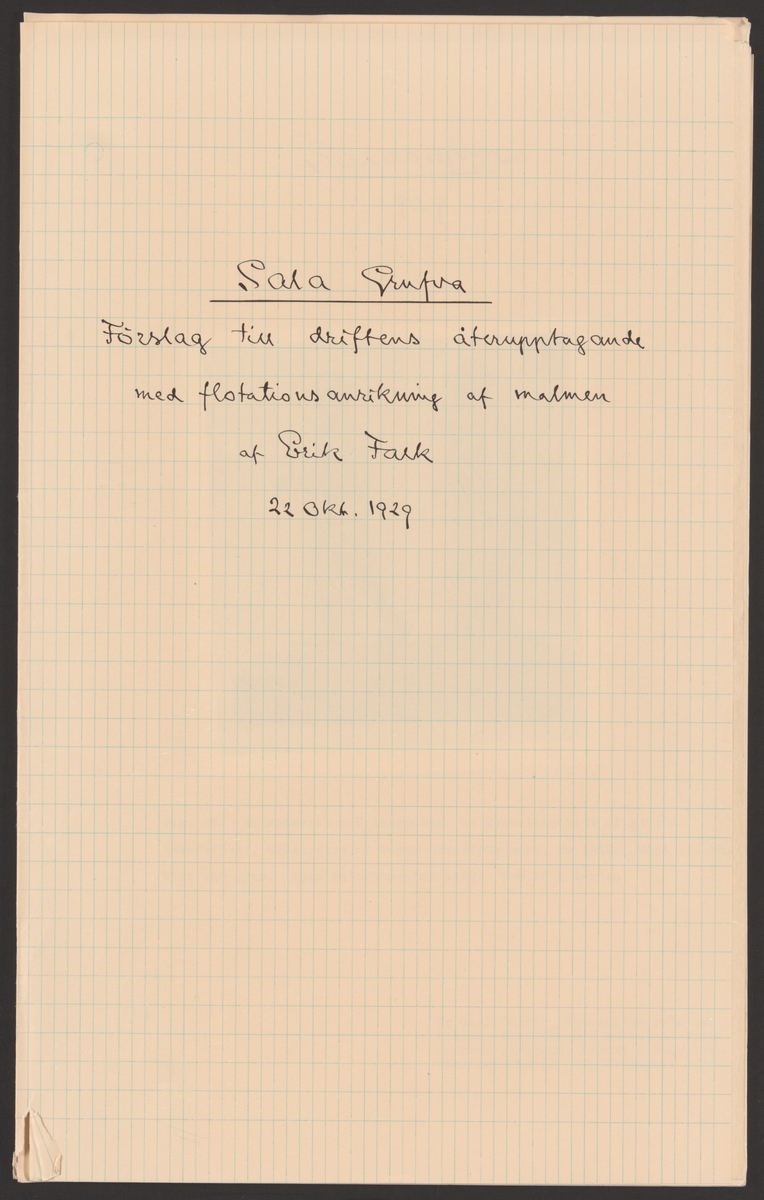 Sala Grufva
Förslag till driftens återupptagande
med flotationsanrikning af malmen
af Erik Falk
22 Okt. 1929